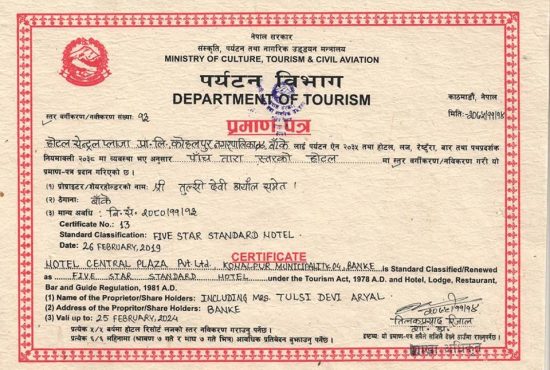 नेपाल सरकार
संस्कृति, पर्यटन तथा नागरिक उड्डयन मन्त्रालय
MINISTRY OF CULTURE, TOURISM & CIVIL AVIATION
पर्यटन विभाग
DEPARTMENT OF TOURISM
काठमाडौं, नेपाल
स्तर वर्गीकरण/नविकरण संख्याः १३
मितिः-२०७५/११/१४
प्रमाण-पत्र
होटल सेन्ट्रल प्लाजा प्रा.लि. कोहलपुर नगरपालिका ४, बाँके लाई पर्यटन ऐन २०३५ तथा होटल, लज, रेष्टुराँ, बार तथा पथप्रदर्शक
नियमावली २०३८ मा व्यवस्था भए अनुसार पाँच तारा स्तरको होटल मा स्तर वर्गीकरण/नविकरण गरी यो
प्रमाण-पत्र प्रदान गरिएको छ ।
(१) प्रोप्राइटर/शेयरहोल्डरको नामः श्री तुल्सी देवी अर्याल समेत ।
(२) ठेगानाः बाँके
(३) मान्य अवधिः वि.सं. २०८०/११/१३
Certificate No.: 13
Standard Classification: FIVE STAR STANDARD HOTEL.
Date: 26 FEBRUARY, 2019
CERTIFICATE
HOTEL CENTRAL PLAZA Pvt. Ltd. KOHALPUR MUNICIPALITY 04, BANKE is Standard Classified/Renewed
as FIVE STAR STANDARD HOTEL under the Tourism Act, 1978 A.D. and Hotel, Lodge, Restaurant,
Bar and Guide Regulation, 1981 A.D.
(1) Name of the Proprietor/Share Holders: INCLUDING MRS. TULSI DEVI ARYAL
(2) Address of the Proprietor/Share Holders: BANKE
(3) Vali up to: 25 FEBRUARY, 2024
२०७५/११/१४
प्रत्येक ५/५ बर्षमा होटल रिसोर्ट मध्यको स्तर नविकरण गराउनु पर्नेछ ।
प्रत्येक ६/६ महिनामा (श्रावण ७ गते र माघ ७ गते भित्र) आवधिक प्रतिवेदन बुझाउनु पर्नेछ ।
शाखा अधिकृत